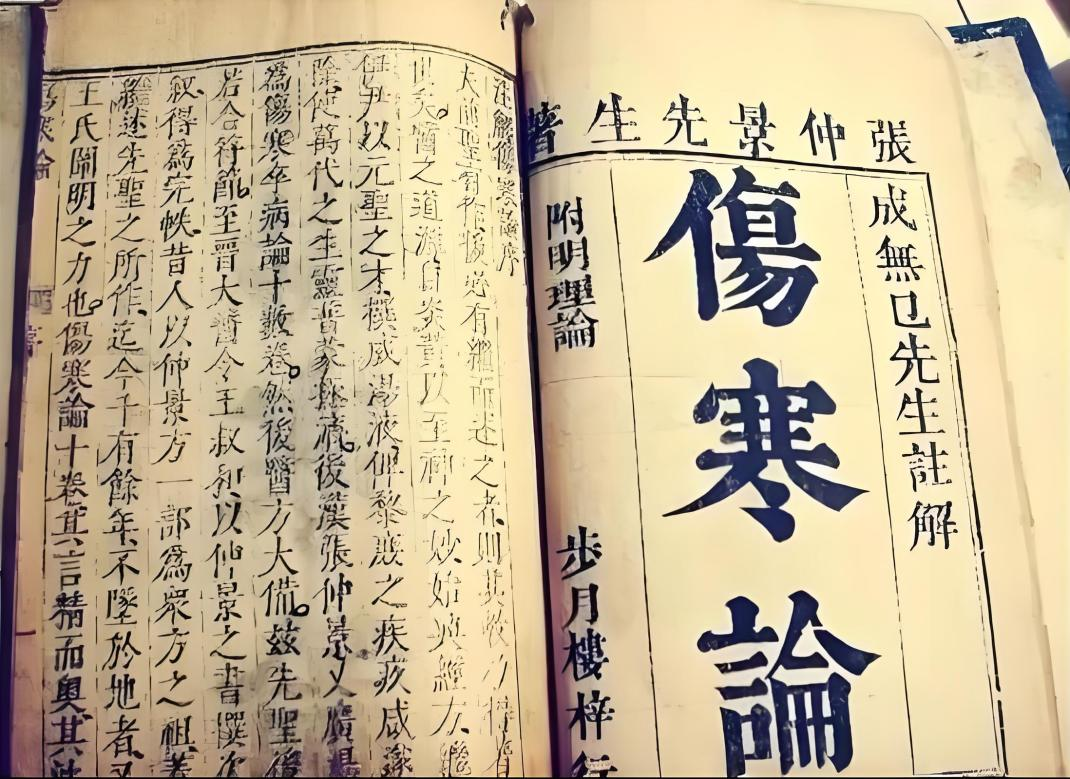 張仲景先生著
成無已先生註解
傷寒論
附明理論 步月樓梓行
註解傷寒論序
夫前聖有作後必有繼而述之者則其教乃得著
世矣醫之道源自炎黃以至神之妙始興經方繼
伊尹以元聖之才撰成湯液俾黎庶之疾疚咸遂
除使萬代之生靈普蒙拯濟後漢張仲景又廣湯
爲傷寒卒病論十數卷然後醫方大備茲先聖後
若合符節至晉大醫令王叔和以仲景之書撰次
叙得爲完帙昔人以仲景方一部爲衆方之祖蓋
繼述先聖之所作迄今千有餘年不墜於地者又
王氏闡明之力也傷寒論十卷其言精而奧其法